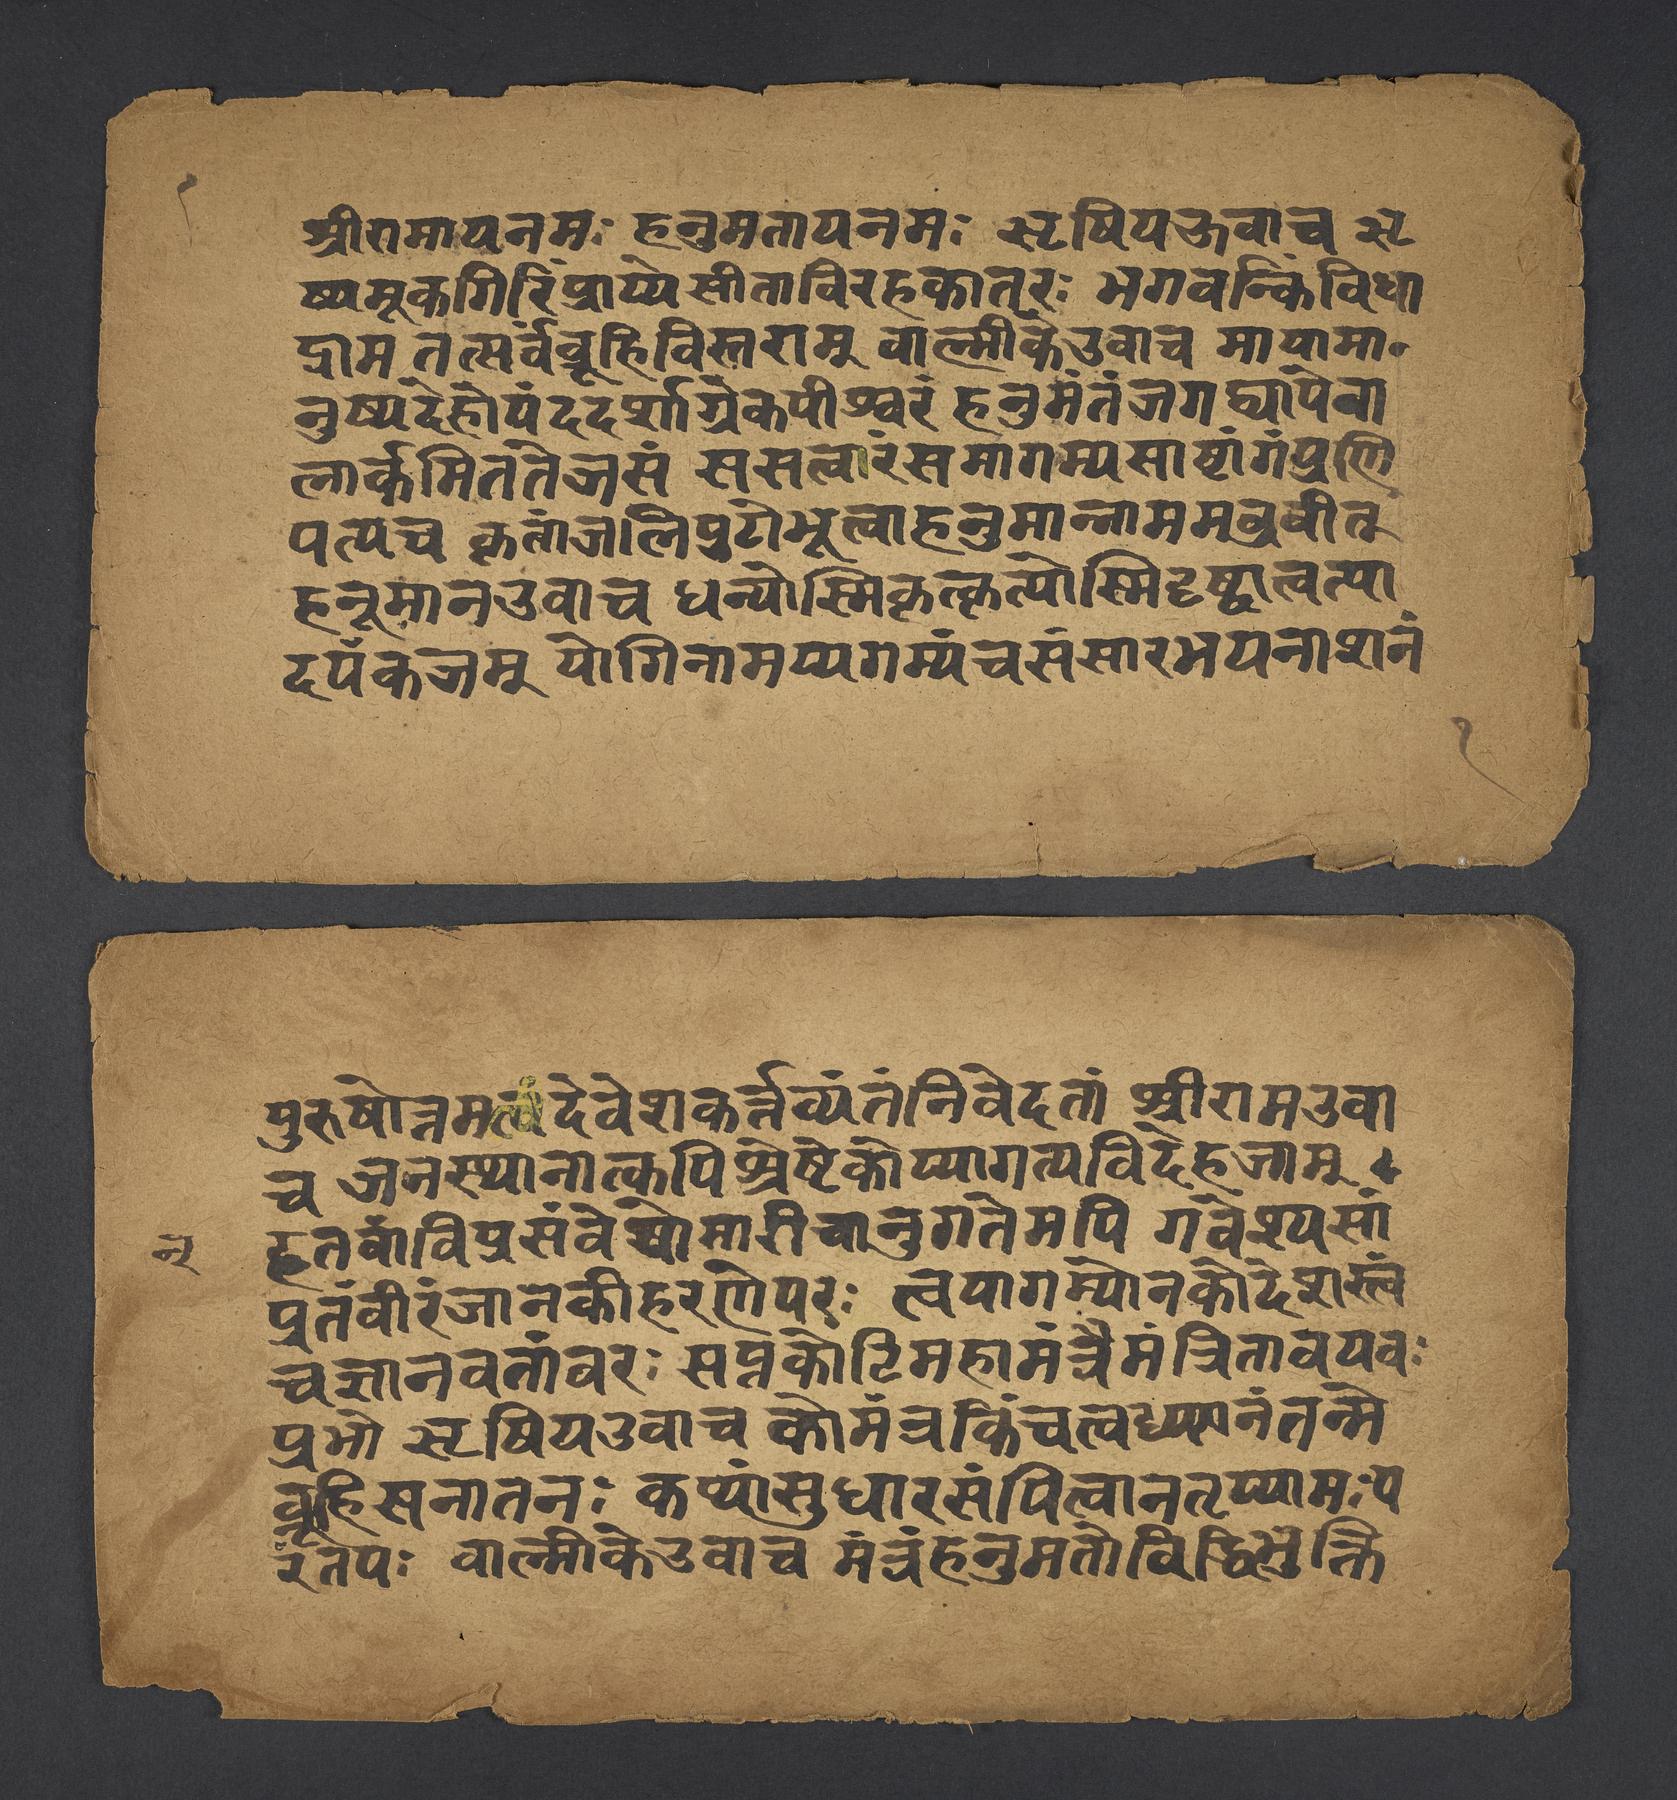 १
श्रीरामायनमः हनुमतायनमः ऋषियऊवाच ऋ
ष्यमूकगिरिंप्राप्ये सीताविरहकातरः भगवन्किंविधा
द्राम तत्सर्वंब्रूहिविस्तरामु वाल्मीकेउवाच मायामा
नुष्यदेहोपंददर्शाग्रेकपीश्वरं हनुमंतंजगद्यापेवा
लार्कमिततेजसं ससत्वारंसमागम्यसाष्टांगंप्रणि
पत्यच कृतांजलिपुटोभूत्वाहनुमान्नाममब्रवीत्
हनूमानउवाच धन्योस्मिकृत्कृत्योस्मिदृष्ट्वात्वत्पा
दपंकजमु योगिनामप्यगम्यंचसंसारभयनाशनं
१
पुरुषोत्तमत्वंदेवेशकर्त्तव्यंतंनिवेदतां श्रीरामउवा
च जनस्थानात्कपिश्रेष्टेकोप्यागत्यविदेहजामु
हृतवांविप्रसंवेषोमारीचानुगतेमपि गवेश्यसां
२
प्रतंवीरंजानकीहरणेपरः त्वयागम्योनकोदेशस्त्वं
चज्ञानवतांवरः सप्तकोटिमहामंत्रैमंत्रितावयवः
प्रभो ऋषियउवाच कोमंत्रकिंचत्वध्यानंतन्मे
ब्रूहिसनातनः कथांसुधारसंपित्वानतृप्यामःप
रंतपः वाल्मीकेउवाच मंत्रंहनुमतोविद्धिभुक्ति